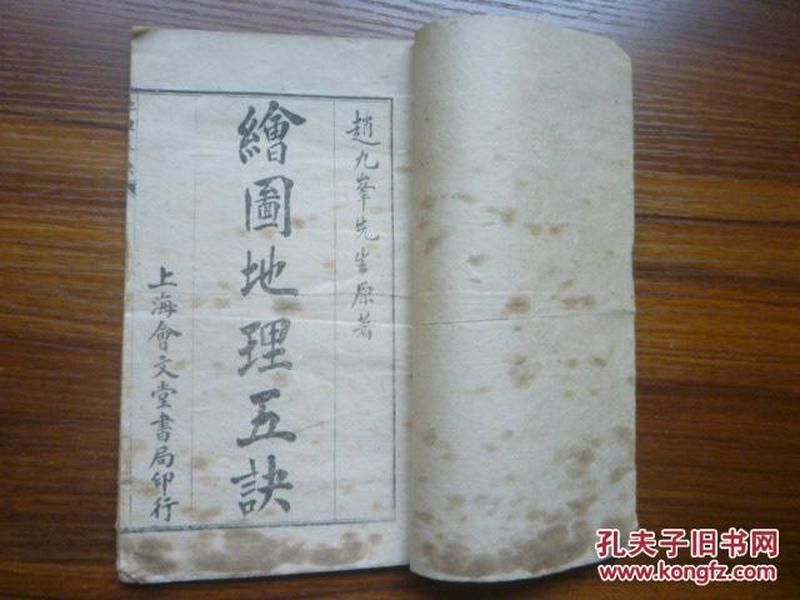 趙九峯先生原著
繪圖地理五訣
上海會文堂書局印行
孔夫子旧书网
www.kongfz.com